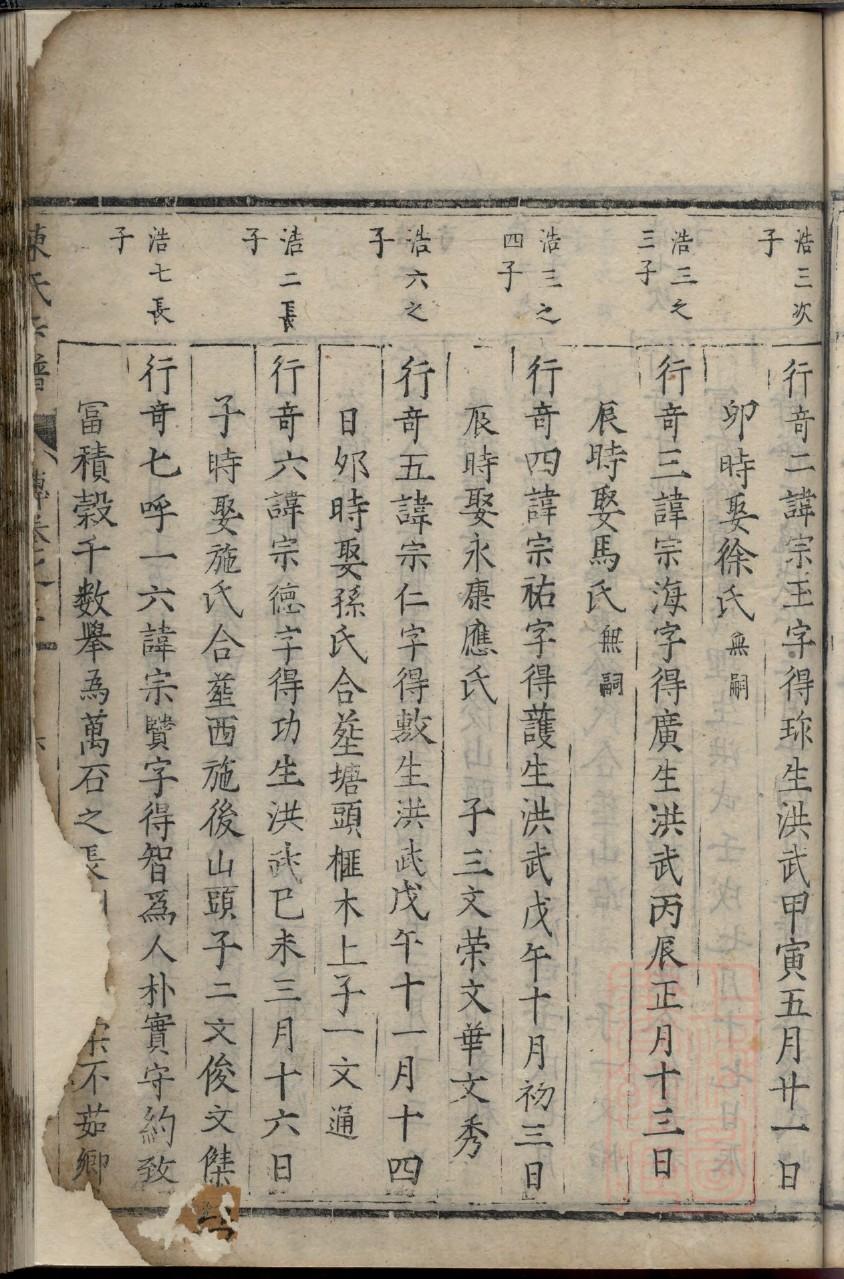 浩三次
子
行奇二諱宗玉字得琭生洪武甲寅五月廿一日
卯時娶徐氏無嗣
浩三之
三子
行奇三諱宗海字得廣生洪武丙辰正月十三日
辰時娶馬氏無嗣
浩三之
四子
行奇四諱宗祐字得護生洪武戊午十月初三日
辰時娶永康應氏 子三文荣文華文秀
浩六之
子
行奇五諱宗仁字得敷生洪武戊午十一月十四
日夘時娶孫氏合塟塘頭榧木上子一文通
浩二長
子
行奇六諱宗德字得功生洪武己未三月十六日
子時娶施氏合塟西施後山頭子二文俊文傑
浩七長
子
行奇七呼一六諱宗贒字得智爲人朴實守約致
冨積榖千數舉爲萬石之長
不茹鄉
陳氏宗譜